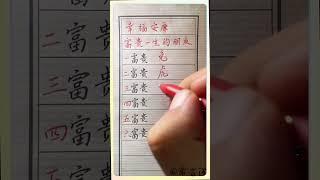 幸福安康
富贵一生的朋友
一富贵 兔
二富贵 虎
三富贵
四富贵
五富贵
六富贵
二富贵
三富贵
四富贵
五